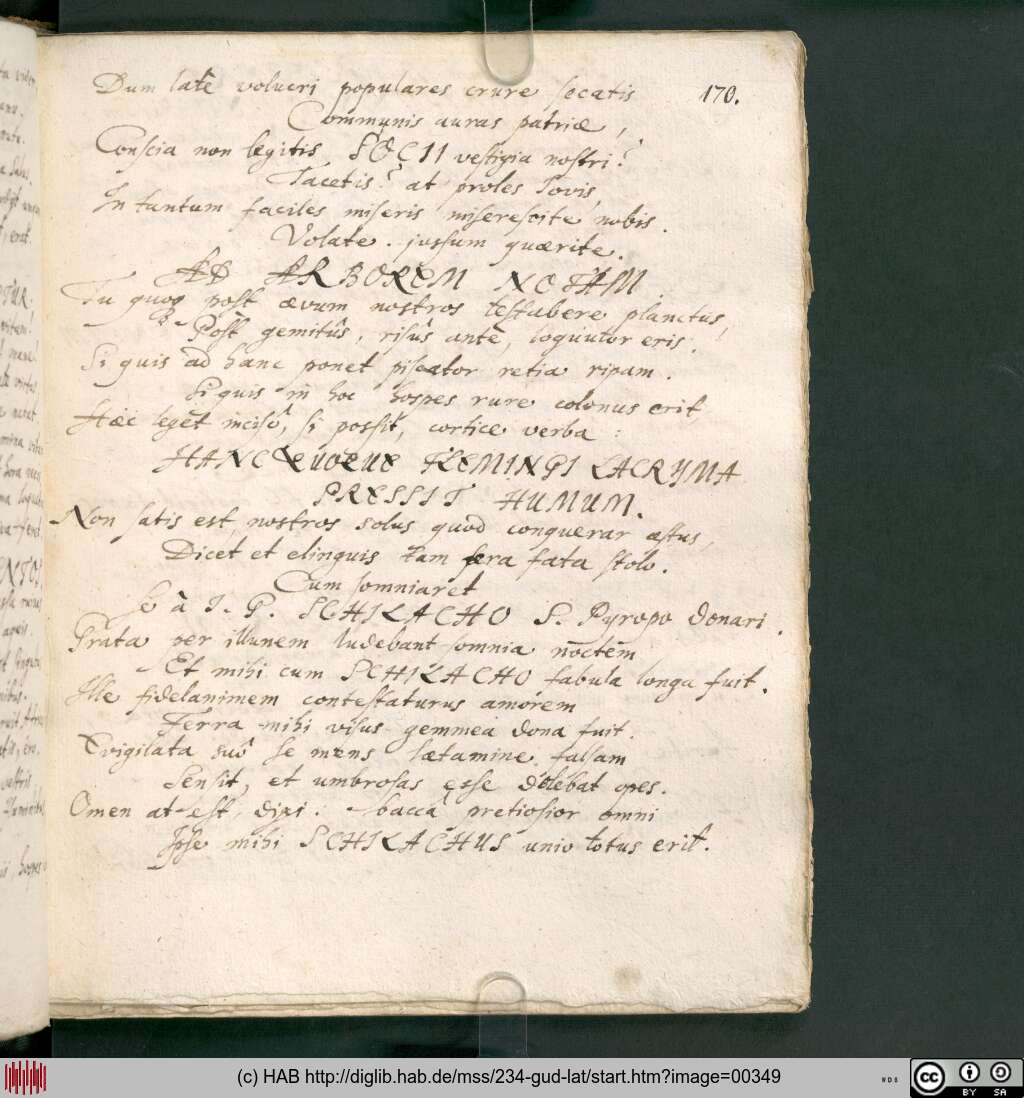 170.
Dum latè volucri populares crure secatis
Communis auras patriæ,
Conscia non legitis SOCII vestigia nostri?
Tacetis? at proles Iovis,
In tantum faciles miseris miserescite nobis.
Volate. jussum quærite.
AD ARBOREM NOTAM.
Tu quoq post ævum nostros testabere planctus,
Post gemitûs, risûs antè, loquutor eris.
Si quis ad hanc ponet piscator retia ripam.
Si quis in hoc hospes rure colonus erit,
Hæc leget incisô, si possit, cortice verba:
HANC FLEMINGI LACRYMA
PRESSIT HUMUM.
Non satis est, nostros solus quòd conquerar æstus,
Dicet et elinguis tam fera fata stolo.
Cum somniaret
se à I. G. SCHILACHO S. Pyropo donari.
Grata per illunem ludebant somnia noctem
Et mihi cum SCHILACHO fabula longa fuit.
Ille fidelanimem contestaturus amorem
Ferra mihi visus gemmea dona fuit.
Evigilata suô se mens lætamine falsam
Sensit, et umbrosas esse dolebat opes.
Omen at est, dixi: baccâ pretiosior omni
Ipse mihi SCHILACHUS unio totus erit.
(c) HAB http://diglib.hab.de/mss/234-gud-lat/start.htm?image=00349
WDB
cc BY SA